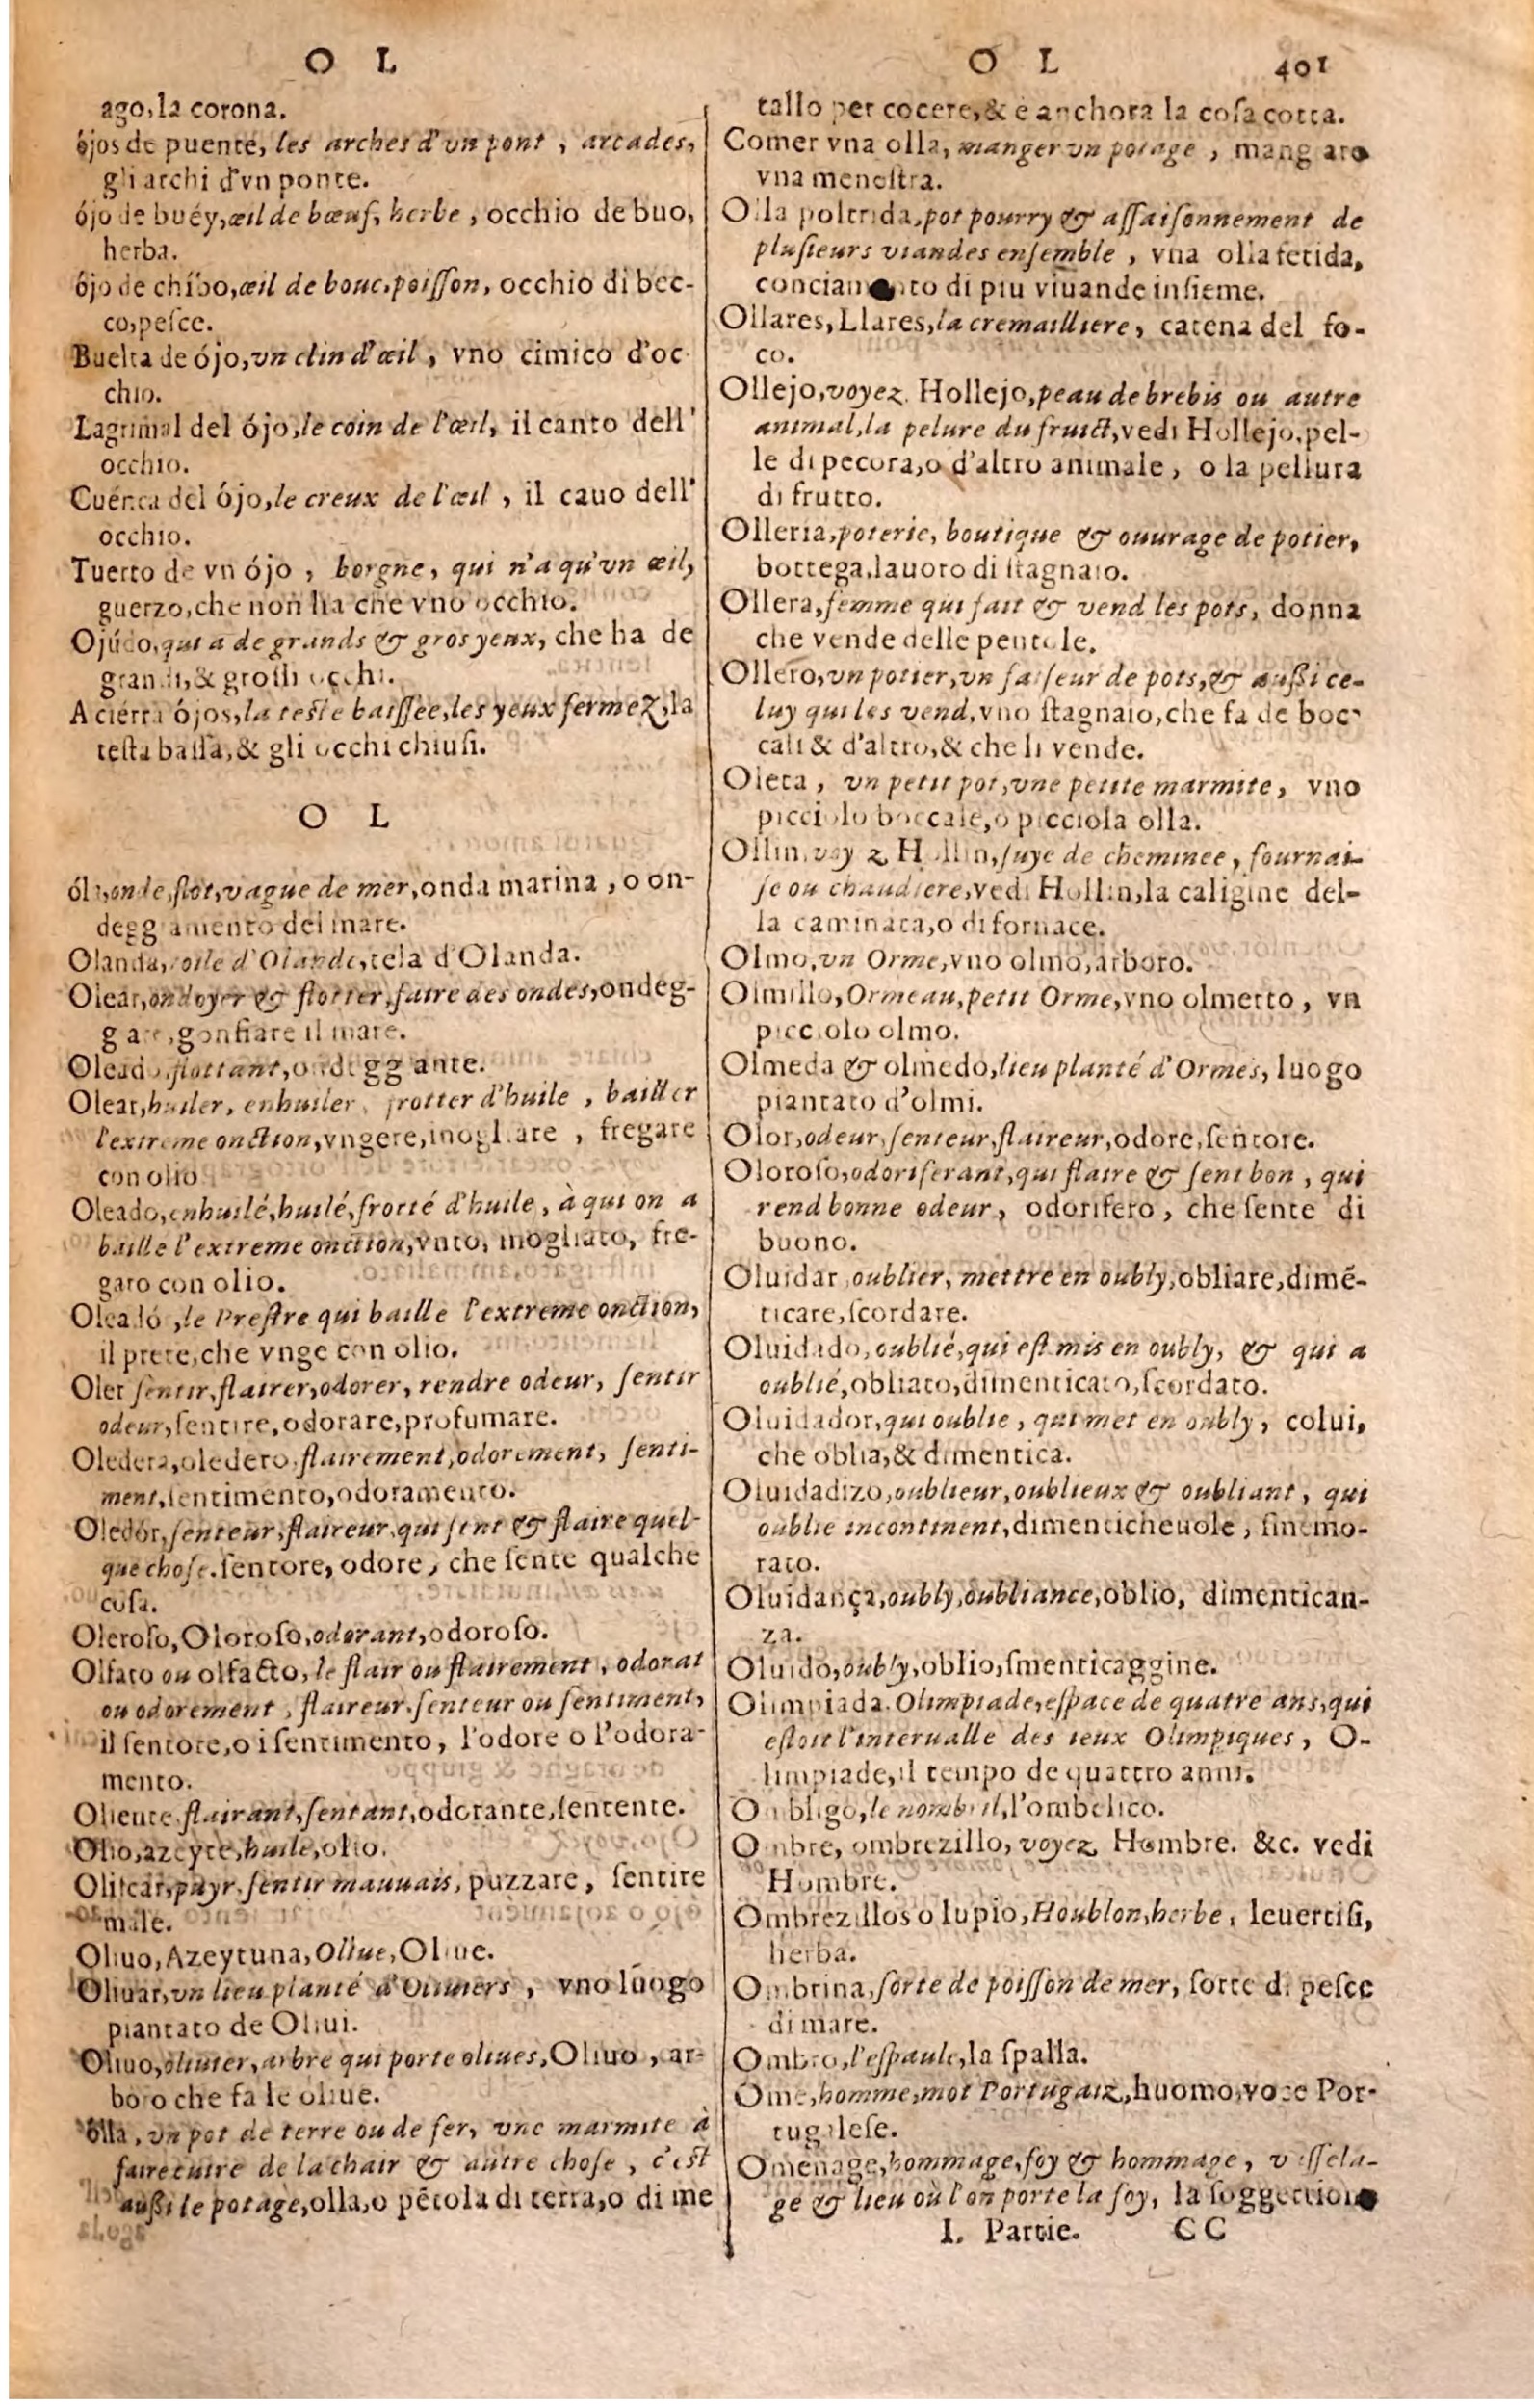 O L
ago,la corona.
ójos de puente, les arches d'vn pont , arcades,
gli archi d'vn ponte.
ójo de buéy,œil de bœuf, herbe , occhio de buo,
herba.
ójo de chíbo,œil de bouc,poiſſon, occhio di bec-
co,peſce.
Buelta de ójo,vn clin d'œil , vno cimico d'oc-
chio.
Lagrimal del ójo,le coin de l'œil, il canto dell'
occhio.
Cuénca del ójo,le creux de l'œil , il cauo dell'
occhio.
Tuerto de vn ójo , borgne, qui n'a qu'vn œil,
guerzo,che non ha che vno occhio.
Ojúdo,qui a de grands & gros yeux, che ha de
grandi,& groſſi occhi.
A ciérra ójos,la teſte baiſſee,les yeux fermez,la
teſta baſſa,& gli occhi chiuſi.
O L
óla,onde,flot,vague de mer,onda marina , o on-
deggiamento del mare.
Olanda,toile d'Olande,tela d'Olanda.
Olear,ondoyer & flotter,faire des ondes,ondeg-
giare,gonfiare il mare.
Oleado,flottant,ondeggiante.
Olear,huiler, enhuiler, frotter d'huile , bailler
l'extreme onction,vngere,inogliare , fregare
con olio
Oleado,enhuilé,huilé,frotté d'huile, à qui on a
baille l'extreme onction,vnto, inogliato, fre-
gato con olio.
Oleadó ,le Preſtre qui baille l'extreme onction,
il prete,che vnge con olio.
Oler ſentir,flairer,odorer, rendre odeur, ſentir
odeur,ſentire,odorare,profumare.
Oledera,oledero,flairement,odorement, ſenti-
ment,ſentimento,odoramento.
Oledór,ſenteur,flaireur,qui ſent & flaire quel-
que choſe.ſentore, odore, che ſente qualche
coſa.
Oleroſo,Oloroſo,odorant,odoroſo.
Olfato ou olfacto, le flair ou flairement , odorat
ou odorement , flaireur.ſenteur ou ſentiment,
il ſentore,o i ſentimento, l'odore o l'odora-
mento.
Oliente,flairant,ſentant,odorante,ſentente.
Olio,azeyte,huile,olio.
Oliſcar,puyr.ſentir mauuais, puzzare, ſentire
male.
Oliuo,Azeytuna,Oliue,Oliue.
Oliuar,vn lieu planté d'Oliuiers , vno luogo
piantato de Oliui.
Oliuo,oliuier,arbre qui porte oliues,Oliuo , ar-
boro che fa le oliue.
ólla, vn pot de terre ou de fer, vne marmite à
faire cuire de la chair & autre choſe , c'eſt
außi le potage,olla,o pẽtola di terra,o di me
O L 401
tallo per cocere,& è anchora la coſa cotta.
Comer vna olla, manger vn potage , mangiare
vna meneſtra.
Olla poltrida,pot pourry & aſſaiſonnement de
pluſieurs viandes enſemble , vna olla fetida,
conciamento di piu viuande inſieme.
Ollares, Llares,la cremailliere, catena del fo-
co.
Ollejo,voyez Hollejo,peau de brebis ou autre
animal,la pelure du fruict,vedi Hollejo.pel-
le di pecora,o d'altro animale, o la pellura
di frutto.
Olleria,poterie, boutique & ouurage de potier,
bottega,lauoro di ſtagnaio.
Ollera,femme qui fait & vend les pots, donna
che vende delle pentole.
Ollero,vn potier,vn faiſeur de pots,& außi ce-
luy qui les vend,vno ſtagnaio,che fa de boc-
cali & d'altro,& che li vende.
Oleta , vn petit pot,vne petite marmite, vno
picciolo boccale,o picciola olla.
Ollin,voyez Hollin,ſuye de cheminee, fournai-
ſe ou chaudiere,vedi Hollin,la caligine del-
la caminata,o di fornace.
Olmo,vn Orme,vno olmo,arboro.
Olmillo,Ormeau,petit Orme,vno olmetto, vn
picciolo olmo.
Olmeda & olmedo,lieu planté d'Ormes, luogo
piantato d'olmi.
Olor,odeur,ſenteur,flaireur,odore,ſentore.
Oloroſo,odoriferant,qui flaire & ſent bon , qui
rend bonne odeur, odorifero, che ſente di
buono.
Oluidar,oublier, mettre en oubly,obliare,dimẽ-
ticare,ſcordare.
Oluidado, oublié,qui eſt mis en oubly, & qui a
oublié,obliato,dimenticato,ſcordato.
Oluidador,qui oublie , qui met en oubly, colui,
che oblia,& dimentica.
Oluidadizo,oublieur,oublieux & oubliant, qui
oublie incontinent,dimenticheuole, ſinemo-
rato.
Oluidança,oubly,oubliance,oblio, dimentican-
za.
Oluido,oubly,oblio,ſmenticaggine.
Olimpiada.Olimpiade,eſpace de quatre ans,qui
eſtoit l'interualle des ieux Olimpiques, O-
limpiade,il tempo de quattro anni.
Ombligo,le nombril,l'ombelico.
Ombre, ombrezillo, voyez Hombre. &c. vedi
Hombre.
Ombrezillos o lupio,Houblon,herbe, leuertiſi,
herba.
Ombrina,ſorte de poiſſon de mer, ſorte di peſce
di mare.
Ombro,l'eſpaule,la ſpalla.
Ome,homme,mot Portugaiz,huomo,voce Por-
tugaleſe.
Omenage,hommage,foy & hommage, vaſſela-
ge & lieu où l'on porte la foy, la ſoggettione
I. Partie. CC